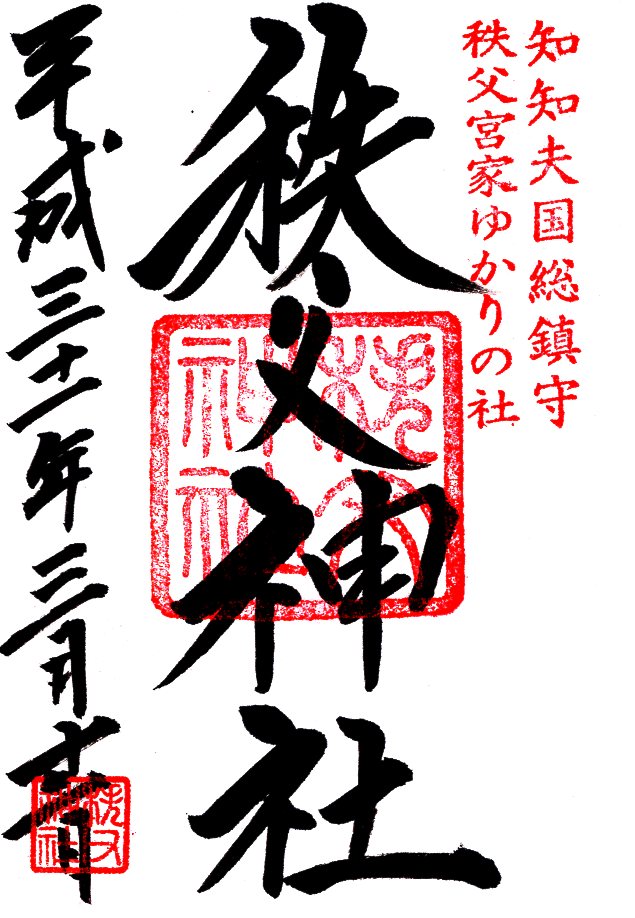 知知夫国総鎮守
秩父宮家ゆかりの社
秩父神社
秩父
神社
平成三十一年三月
秩父
神社